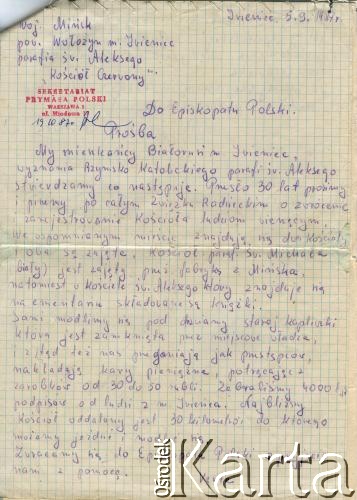 Iwieniec, 5.9.1987r.
Woj. Mińsk
pow. Wołożyn m. Iwieniec
parafia św. Aleksego
"Kościół Czerwony"
SEKRETARIAT
PRYMASA POLSKI
WARSZAWA 1
ul. Miodowa
Do Episkopatu Polski.
Prośba
My mieszkańcy Białorusi m Iwieniec,
wyznania Rzymsko Katolickiego parafi św. Aleksego
stwierdzamy co następuje. Przeszło 30 lat prosimy
i piszemy po całym Związku Radzieckim o zwrócenie
zarejestrowanie Kościoła ludziom wierzącym
We wspomnianym mieście znajdują się dwa kościoły
oba są zajęte. Kościół paraf. św. Michała
(biały) jest zajęty przez fabrykę z Mińska.
natomiast w kościele św. Aleksego który znajduje się
na cmentarzu składowane są książki.
Sami modlimy się pod drzwiami starej kapliczki
która jest zamknięta przez miejscowe władze,
i z tąd też nas przeganiają jak przestępców,
nakładają kary pieniężne potrącając z
zarobków od 30 do 50 rubli. Zebraliśmy 4000
podpisów od ludzi z m. Iwieńca. Najbliższy
Kościół oddalony jest 30 kilometrów do którego
możemy jeździć i modlić się
Zwracamy się do Episkopatu Polski
nam z pomocą.
Ośrodek
Karta